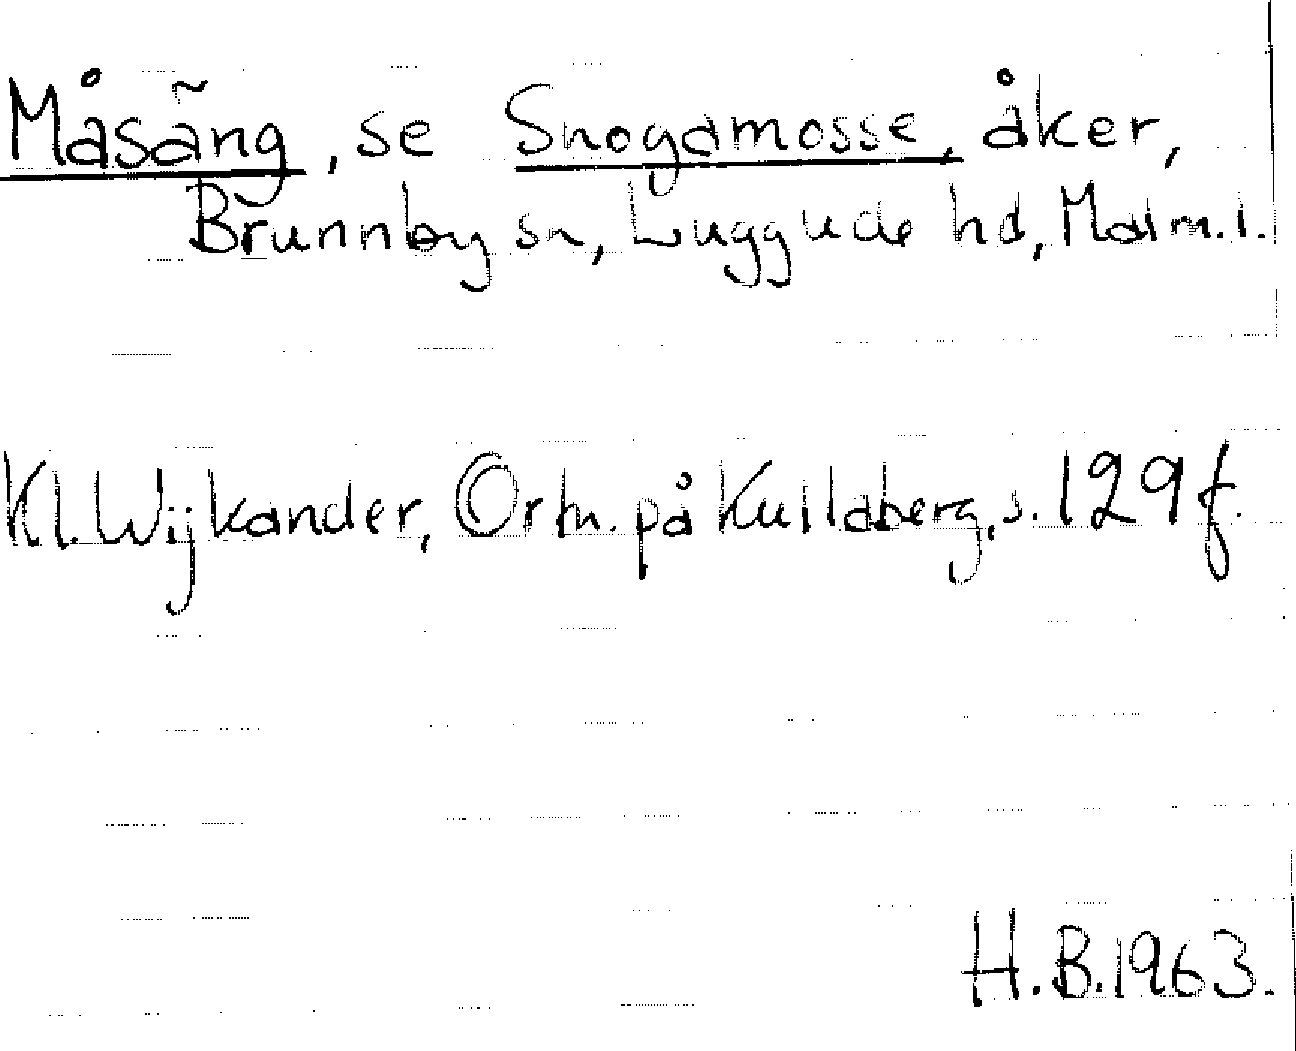 Måsäng, se Snogamosse, åker,
Brunnby sn, Luggude hd, Malm. l.
Kl. Wijkander, Ortn. på Kullaberg, s. 129 f.
H.B. 1963.